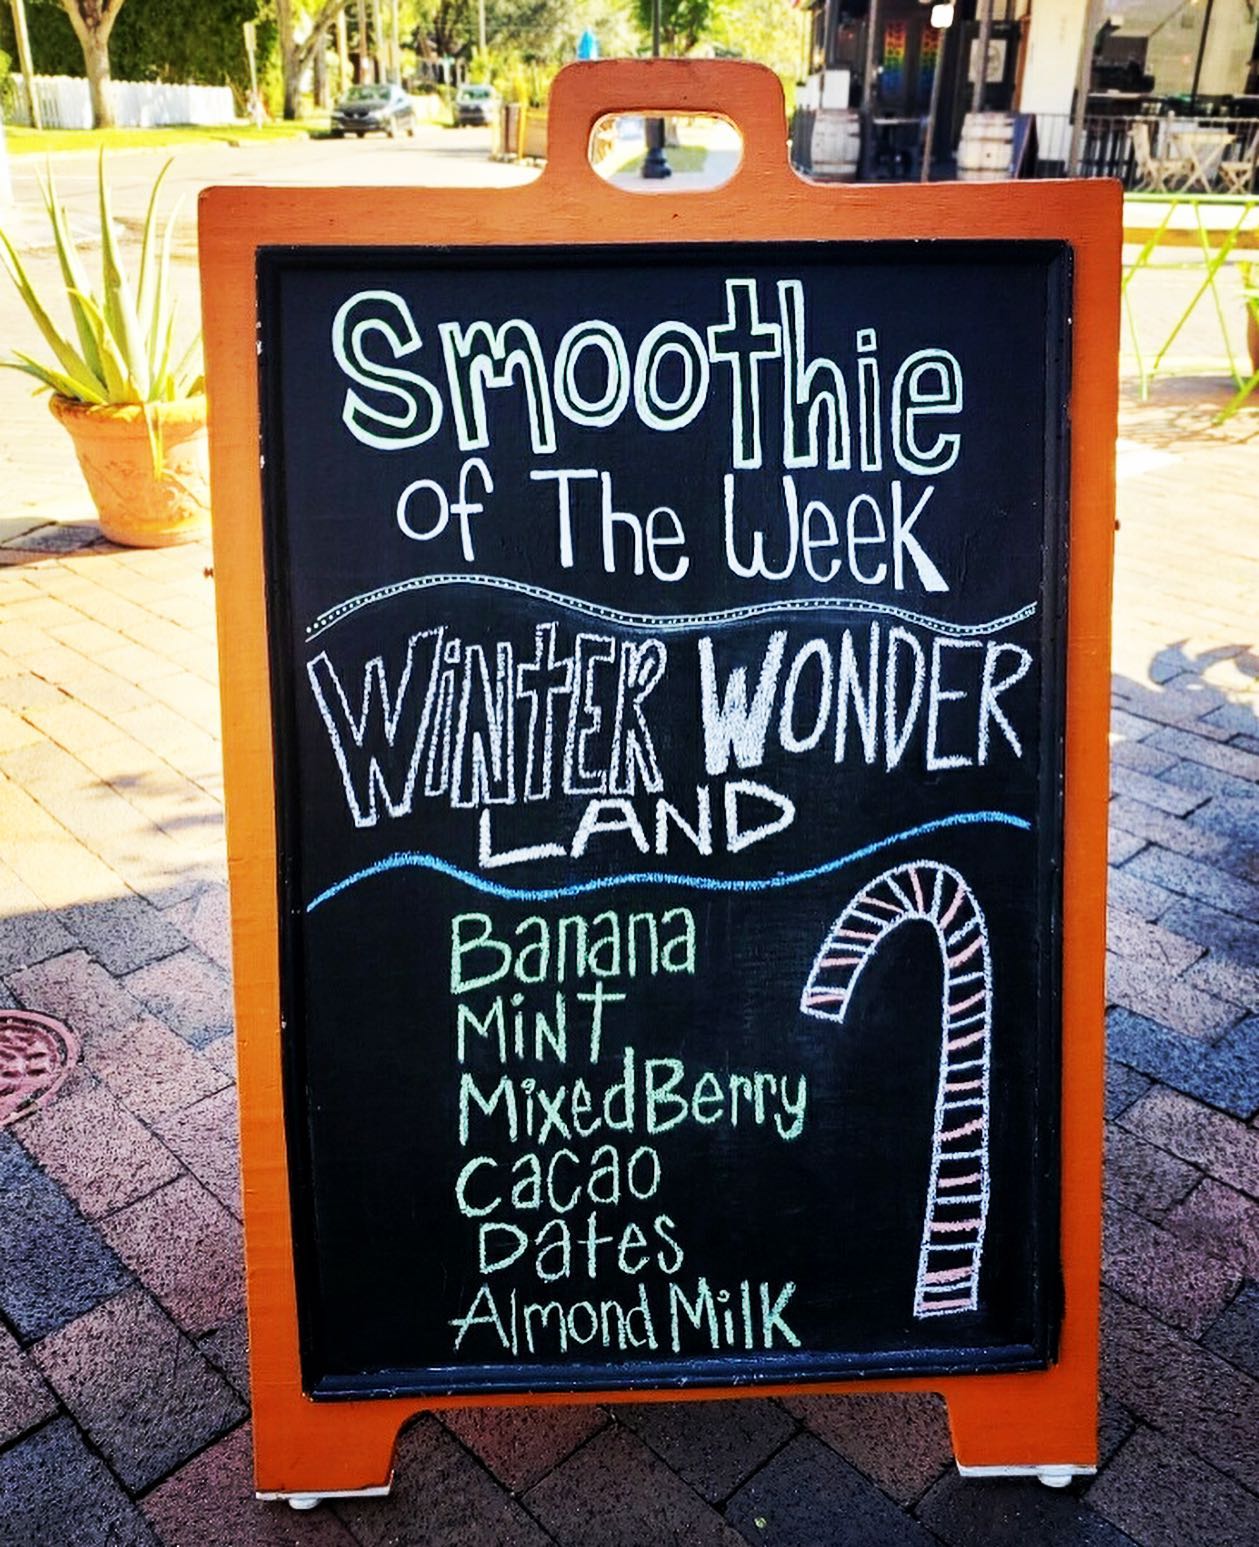 Smoothie
of The Week
WiNtER WONDER
LAND
Banana
MiNT
Mixed Berry
cacao
Dates
Almond Milk